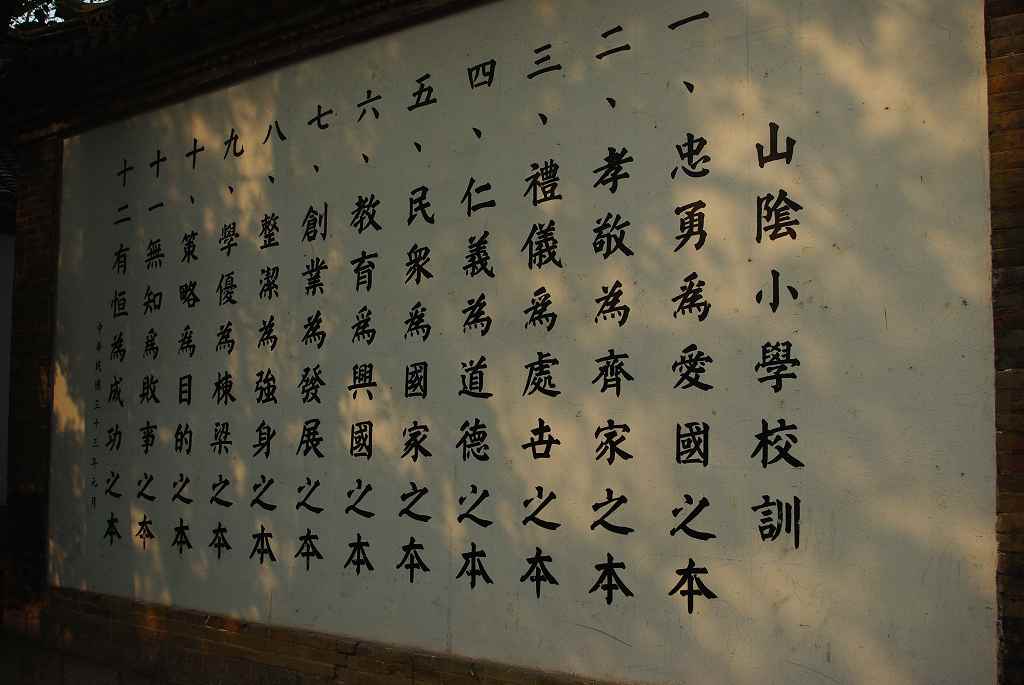 山陰小學校訓
一、忠勇爲愛國之本
二、孝敬為齊家之本
三、禮儀爲處世之本
四、仁義為道德之本
五、民衆爲國家之本
六、教育爲興國之本
七、創業為發展之本
八、整潔為強身之本
九、學優為棟梁之本
十、策略爲目的之本
十一無知爲敗事之本
十二有恒為成功之本
中華民國三十三年元月